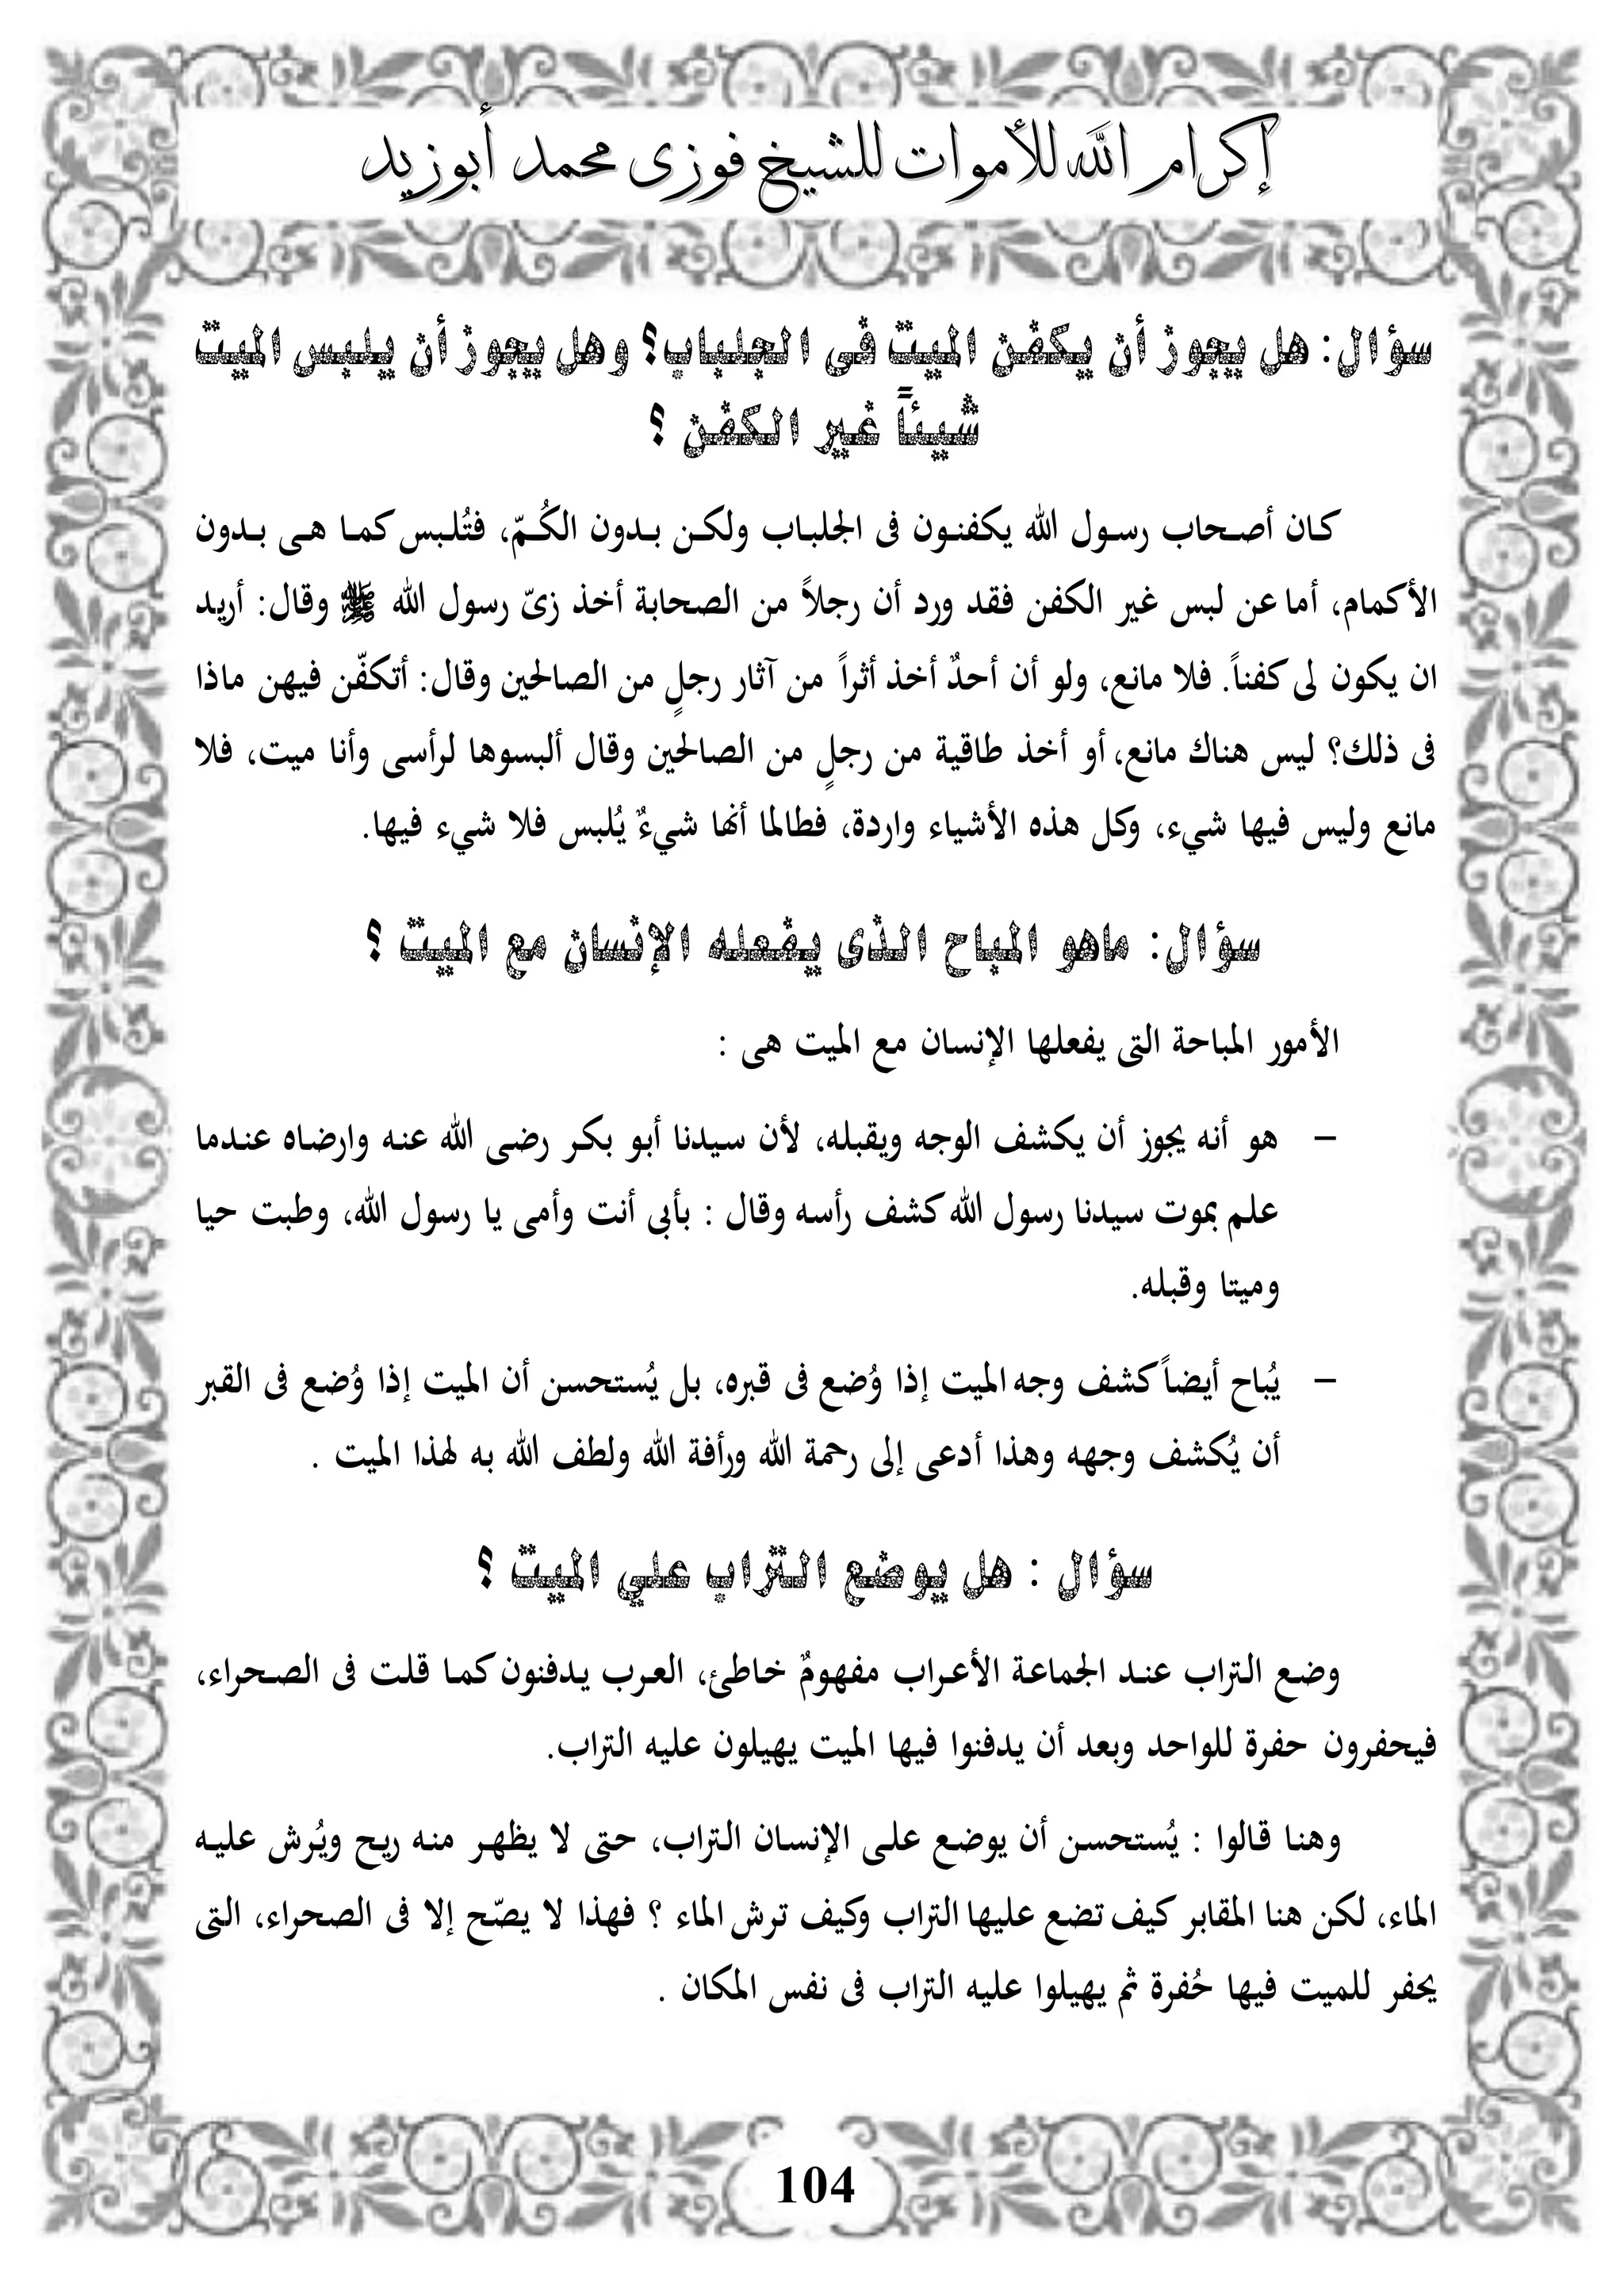 إكرام الله للأموات للشيخ فوزى محمد أبوزيد
سؤال: هل يجوز أن يكفن الميت فى الجلباب؟ وهل يجوز أن يلبس الميت
شيئاً غير الكفن ؟
كان أصحاب رسول الله يكفنون فى الجلباب ولكن بدون الكُمّ، فتُلبس كما هى بدون
الأكمام، أما عن لبس غير الكفن فقد ورد أن رجلاً من الصحابة أخذ زىّ رسول الله ﷺ وقال: أريد
ان يكون لى كفناً. فلا مانع، ولو أن أحدٌ أخذ أثراً من آثار رجلٍ من الصالحين وقال: أتكفّن فيهن ماذا
فى ذلك؟ ليس هناك مانع، أو أخذ طاقية من رجلٍ من الصالحين وقال ألبسوها لرأسى وأنا ميت، فلا
مانع وليس فيها شيء، وكل هذه الأشياء واردة، فطالما أنها شيءٌ يُلبس فلا شيء فيها.
سؤال: ماهو المباح الذى يفعله الإنسان مع الميت ؟
الأمور المباحة التى يفعلها الإنسان مع الميت هى :
- هو أنه يجوز أن يكشف الوجه ويقبله، لأن سيدنا أبو بكر رضى الله عنه وارضاه عندما
علم بموت سيدنا رسول الله كشف رأسه وقال : بأبى أنت وأمى يا رسول الله، وطبت حيا
وميتا وقبله.
- يُباح أيضاً كشف وجه الميت إذا وُضع فى قبره، بل يُستحسن أن الميت إذا وُضع فى القبر
أن يُكشف وجهه وهذا أدعى إلى رحمة الله ورأفة الله ولطف الله به لهذا الميت .
سؤال : هل يوضع التراب علي الميت ؟
وضع التراب عند الجماعة الأعراب مفهومٌ خاطئ، العرب يدفنون كما قلت فى الصحراء،
فيحفرون حفرة للواحد وبعد أن يدفنوا فيها الميت يهيلون عليه التراب.
وهنا قالوا : يُستحسن أن يوضع على الإنسان التراب، حتى لا يظهر منه ريح ويُرش عليه
الماء، لكن هنا المقابر كيف تضع عليها التراب وكيف ترش الماء ؟ فهذا لا يصّح إلا فى الصحراء، التى
يحفر للميت فيها حُفرة ثم يهيلوا عليه التراب فى نفس المكان .
104